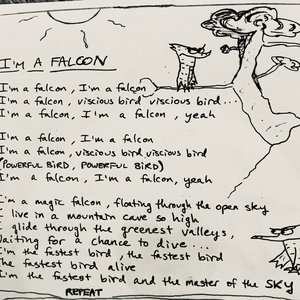 I'M A FALCON
I'm a falcon, I'm a falcon
I'm a falcon, viscious bird viscious bird...
I'm a falcon, I'm a falcon, yeah
I'm a falcon, I'm a falcon
I'm a falcon, viscious bird viscious bird
(POWERFUL BIRD, POWERFUL BIRD)
I'm a falcon, I'm a falcon, yeah
I'm a magic falcon, floating through the open sky
I live in a mountain cave so high
I glide through the greenest valleys,
Waiting for a chance to dive...
I'm the fastest bird, the fastest bird
The fastest bird alive
I'm the fastest bird and the master of the SKY
REPEAT